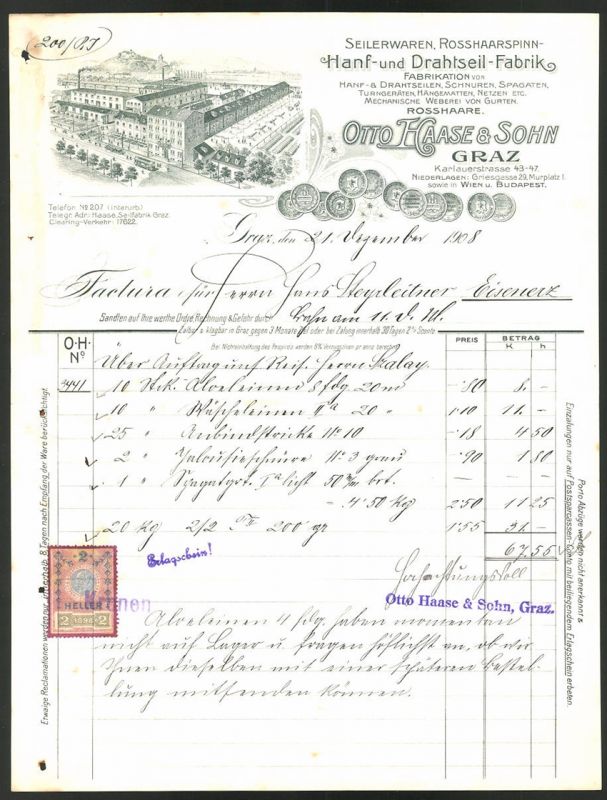 200/P.J
SEILERWAREN, ROSSHAARSPINN-
HANF- UND DRAHTSEIL-FABRIK
FABRIKATION VON
HANF- & DRAHTSEILEN, SCHNUREN, SPAGATEN,
TURNGERÄTEN, HÄNGEMATTEN, NETZEN ETC.
MECHANISCHE WEBEREI VON GURTEN.
ROSSHAARE.
OTTO HAASE & SOHN
GRAZ
Karlauerstrasse 43-47.
NIEDERLAGEN: Griesgasse 29, Murplatz 1.
sowie in WIEN U. BUDAPEST.
Telefon No 207 (Interurb.)
Telegr. Adr.: Haase, Seilfabrik Graz.
Clearing-Verkehr: 17622.
Graz, den 21. Dezember 1908
Factura für Herrn Hans Steyrleitner Eisenerz
Sandten auf Ihre werthe Ordre, Rechnung & Gefahr durch Bahn am
Zalbar & klagbar in Graz, gegen 3 Monate Ziel oder bei Zalung innerhalb 30 Tagen 2% Sconto
Bei Nichteinhaltung des Respiros werden 6% Verzugzinsen pr anno berechnet.
O.H. No PREIS BETRAG K h
Über Auftrag uns. Reis. Herrn Szalay.
3441 10 Stck. Aloeleinen 8 fdg 20 m -.80 8.-
10 " Wäscheleinen IIa 20 " 1.10 11.-
25 " Anbindstricke No 10 -.18 4 50
2 " Jalousieschnüre No 3 grau -.90 1.80
1 " Spagatgrt. Ia licht 50 m/m brt.
- 4.50 kg 2.50 11 25
20 kg 2/2 200 gr 1.55 31.-
67.55
Erlagschein!
Hochachtungsvoll
Otto Haase & Sohn, Graz.
2
HELLER
Kronen
2 1898 2
Aloeleinen 4 fdg. haben momentan
nicht auf Lager u. fragen höflichst an, ob wir
Ihnen dieselben mit einer späteren Bestel-
lung mitsenden können.
Etwaige Reclamationen werden nur innerhalb 8 Tagen nach Empfang der Ware berücksichtigt.
Porto Abzüge werden nicht anerkannt &
Einzalungen nur auf Postsparcassen-Conto mit beiliegendem Erlagschein erbeten.